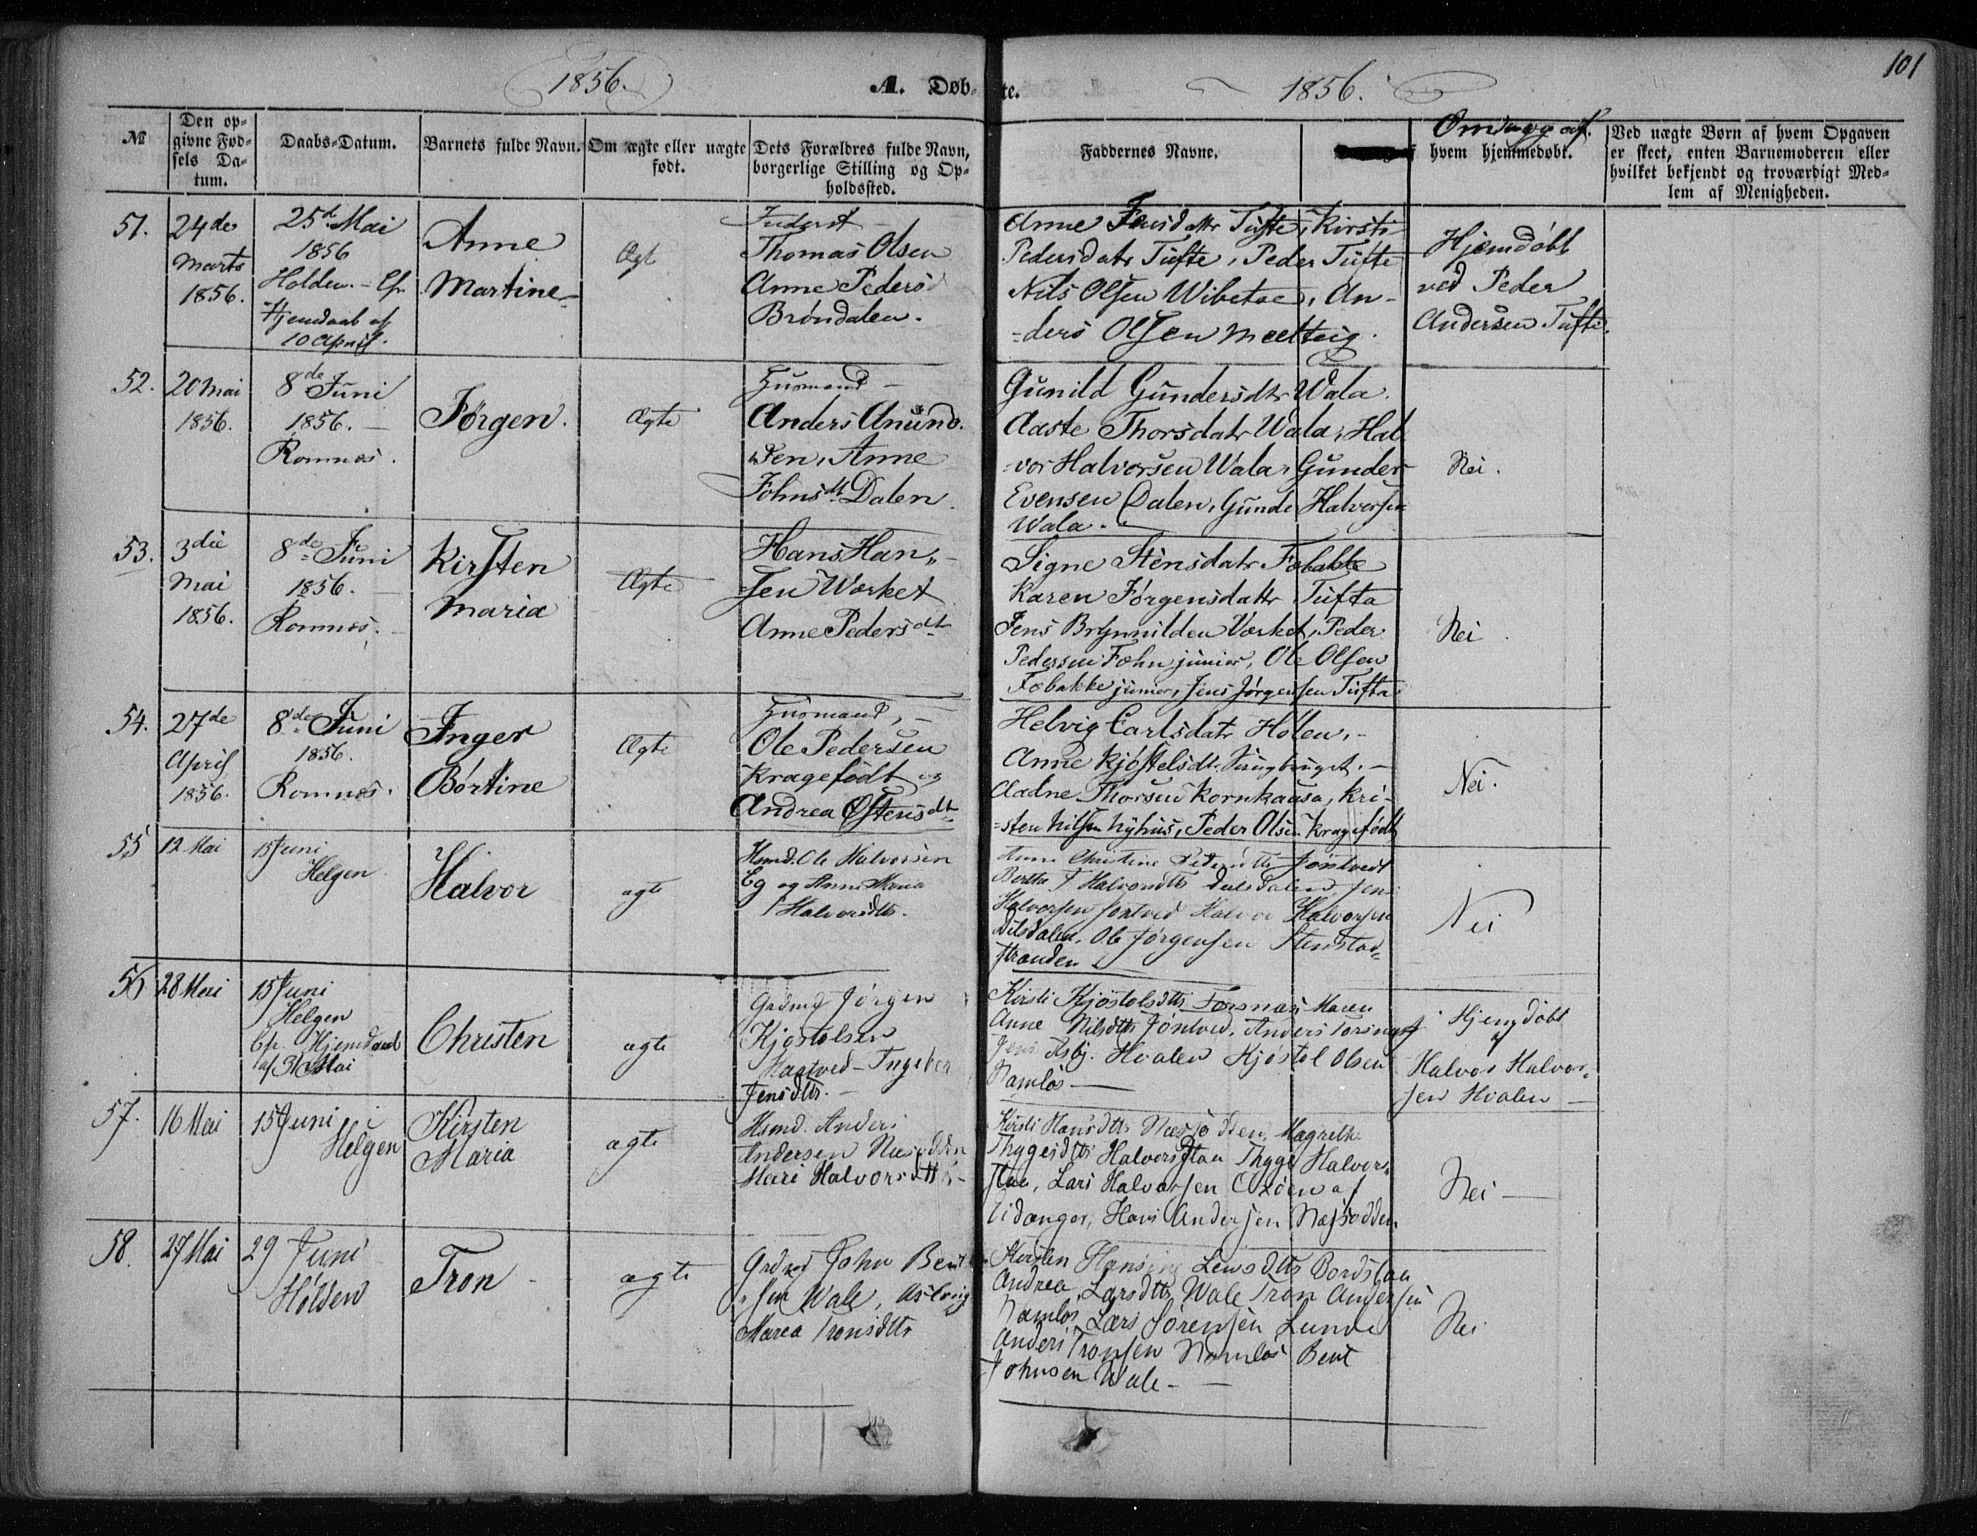 101
1856. A. Døb- te. 1856.
№
Den op-
givne Fød-
sels Da-
tum.
Daabs-Datum.
Barnets fulde Navn.
Om ægte eller uægte
født.
Dets Forældres fulde Navn,
borgerlige Stilling og Op-
holdssted.
Faddernes Navne.
Om døbt af
hvem hjemmedøbt.
Ved uægte Børn af hvem Opgaven
er skeet, enten Barnemoderen eller
hvilket bekjendt og troværdigt Med-
lem af Menigheden.
51.
24de
Marts
1856.
25d Mai
1856
Holden. - Cfr
Hjemdaab af
10 April.
Anne
Martine
Ægte
Inderst -
Thomas Olsen
Anne Pedersd
Brøndalen.
Anne Jensdattr Tufte, Kirsti
Pedersdatr Tufte, Peder Tufte
Nils Olsen Wibetoe, An-
-ders Olsen Melteig.
Hjemdøbt
ved Peder
Andersen Tufte.
52.
20 Mai
1856.
8de Juni
1856. -
Romnæs.
Jørgen.
Ægte
Husmand -
Anders Anund-
sen, Anne
Johnsdt Dalen.
Gunild Gundersdtr Wala.
Aaste Thorsdatr Wala, Hal
-vor Halvorsen Wala, Gunder
Evensen Dalen, Gunde Halvorsen
Wala.
Nei.
53.
3die
Mai
1856.
8de Juni
1856.
Romnæs.
Kirsten
Maria
Ægte
Hans Han-
sen Værket
Anne Pedersdt
Signe Stensdatr Fobakke
Karen Jørgensdattr Tufta
Jens Brynnilden Værket, Peder
Pedersen Fohn junior, Ole Olsen
Fobakke junior, Jens Jørgensen Tufta
Nei.
54.
27de
April
1856.
8de Juni
1856.
Romnæs.
Inger
Børtine
Ægte
Husmand, -
Ole Pedersen
Kragefødt og
Andrea Østensdt
Helvig Carlsdatr Holen, -
Anne Kjøstelsdt Saugbruget. -
Aadne Thorsen Kornhausa, Kri-
-sten Nilsen Nyhus, Peder Olsen Kragefødt
Nei.
55
12 Mai
15 Juni
Helgen
Halvor
ægte
Hsmd. Ole Halvorsen
Eg og Anne Maria
Halvorsdtr.
Anne Christine Pedersdtr Jøntvedt
Berthe T Halvorsdtr Dalsdalen, Jens
Halvorsen Jøntved Halvor Halvorsen
Dilsdalen, Ole Jørgensen Stenstad-
stranden
Nei
56
28 Mai
15 Juni
Helgen
Cfr. Hjemdaab
af 31 Mai
Christen
ægte
Grdmd Jørgen
Kjøstolsen
Haatved - Ingeber
Jensdtr. -
Kirsti Kjøstolsdtr Forsnæs Maren
Anne Nilsdtr Jøntved, Anders Forsnæs
Jens Asbj. Hvalen Kjøstol Olsen
Namløs -
Hjemdøbt
af
Halvor Halvor-
sen Hvalen -
57.
16 Mai
15 Juni
Helgen
Kirsten
Maria
ægte
Hsmd. Anders
Andersen Næsodden
Mari Halvorsdtr -
Kirsti Hansdtr Næsodden, Magrethe
Thygesdtr Halvorsstaa Thyge Halvors-
staa, Lars Halvorsen Oxøen af
Eidanger, Hans Andersen Næsodden
Nei -
58.
27 Mai
29 Juni
Holden
Tron -
ægte
Grdmd John Bent
sen Wale, Aslaug
Marea Tronsdtr
Kirsten Hansine Lewsdtr Bordstaa
Andrea Larsdtr Wale Tron Andersen
Namløs Lars Sørensen Lunde
Anders Tronsen Namløs Bent
Johnsen Wale -
Nei